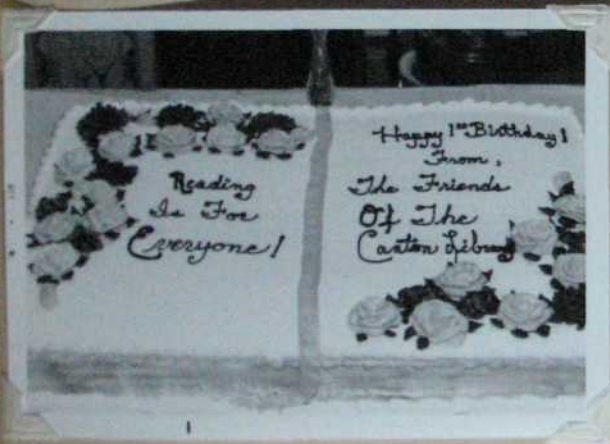 Reading
Is For
Everyone!
Happy 1st Birthday!
From,
The Friends
Of The
Canton Library